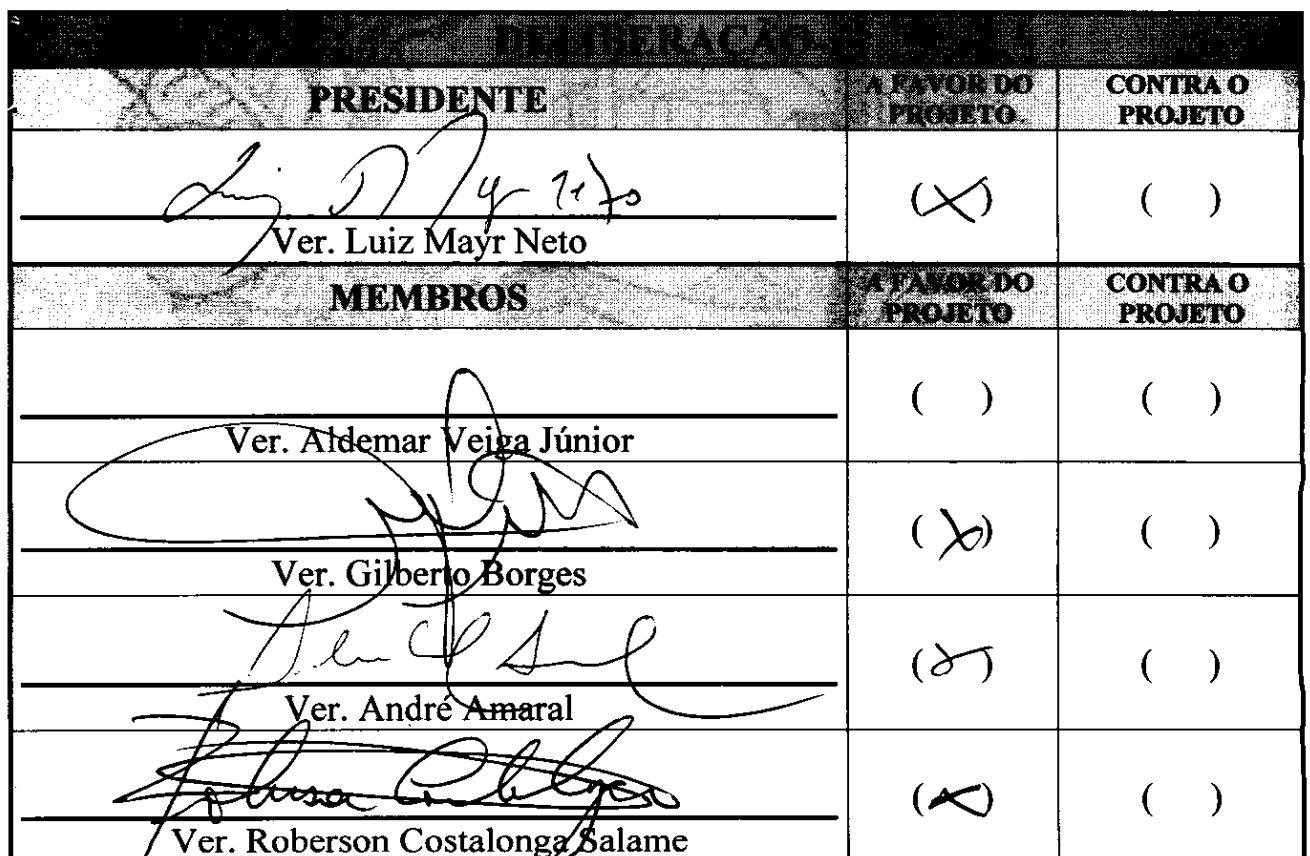 DELIBERAÇÃO
PRESIDENTE A FAVOR DO PROJETO CONTRA O PROJETO
(X) ( )
Ver. Luiz Mayr Neto
MEMBROS A FAVOR DO PROJETO CONTRA O PROJETO
( ) ( )
Ver. Aldemar Veiga Júnior
(X) ( )
Ver. Gilberto Borges
(X) ( )
Ver. André Amaral
(X) ( )
Ver. Roberson Costalonga Salame